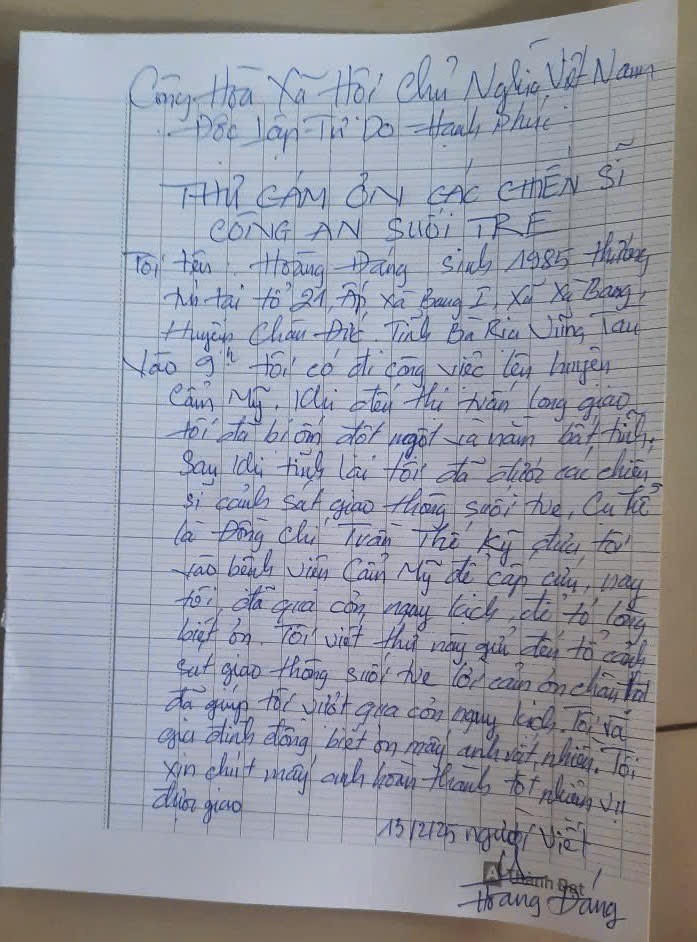 Cộng Hòa Xã Hội Chủ Nghĩa Việt Nam
Độc Lập - Tự Do - Hạnh Phúc
THƯ CÁM ƠN CÁC CHIẾN SĨ
CÔNG AN SUỐI TRE
Tôi tên: Hoàng Đăng sinh 1985 thường
trú tại tổ 21, Ấp xà Bang I, Xã Xà Bang,
Huyện Châu Đức. Tỉnh Bà Rịa Vũng Tàu
Vào 9h tôi có đi công việc lên huyện
Cẩm Mỹ. Khi đến thị trấn long giao
tôi đã bị ốm đột ngột và nằm bất tỉnh,
Sau khi tỉnh lại tôi đã được các chiến
sĩ cảnh sát giao thông suối tre, Cụ thể
là Đồng chí Trần Thế Kỷ đưa tôi
vào bệnh viện Cẩm Mỹ để cấp cứu, nay
tôi đã qua cơn nguy kịch, để tỏ lòng
biết ơn. Tôi viết thư này gửi đến tổ cảnh
sát giao thông suối tre lời cảm ơn chân thật
đã giúp tôi vượt qua cơn nguy kịch. Tôi và
gia đình đồng biết ơn mấy anh rất nhiên. Tôi
xin chút mấy anh hoàn thành tốt nhiệm vụ
được giao
13/2/25 người viết
Thành Đạt
Hoàng Đăng